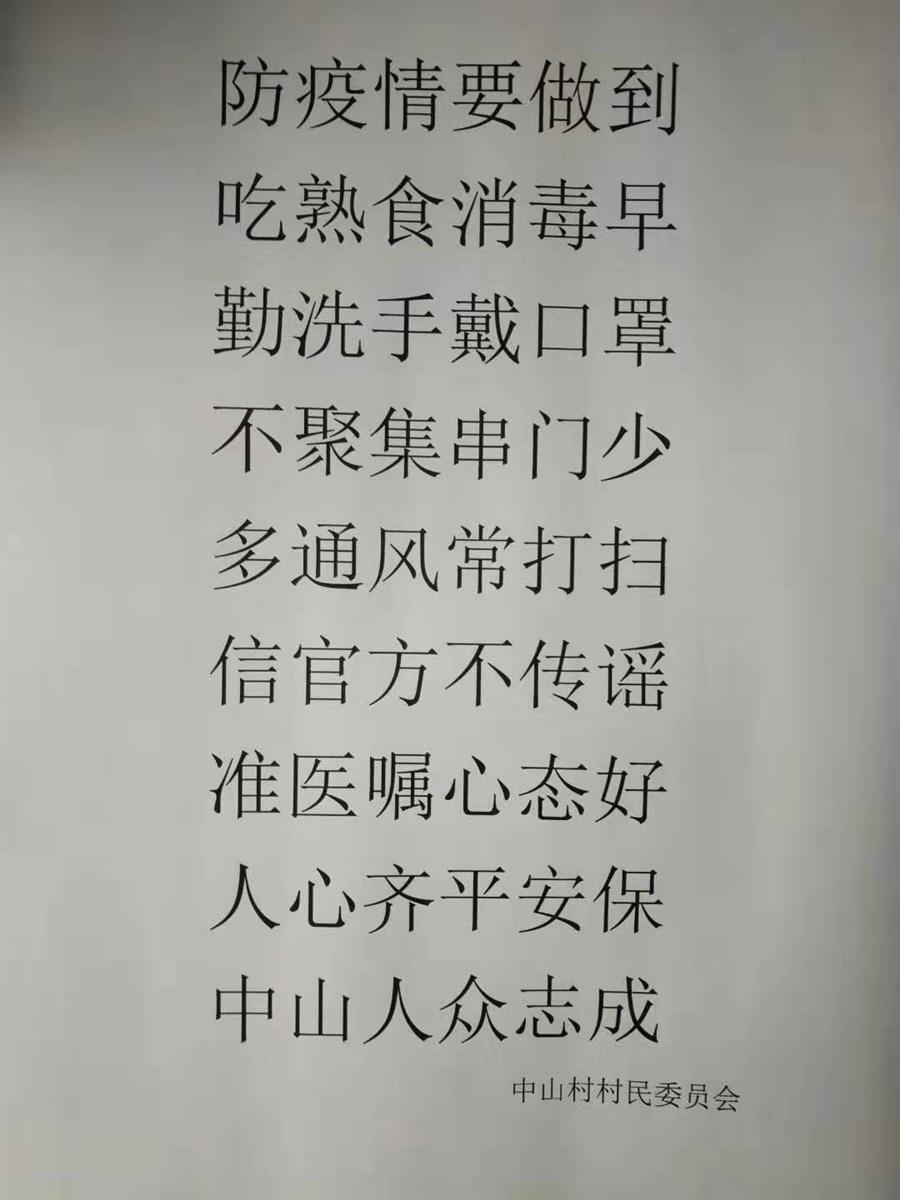 防疫情要做到
吃熟食消毒早
勤洗手戴口罩
不聚集串门少
多通风常打扫
信官方不传谣
准医嘱心态好
人心齐平安保
中山人众志成
中山村村民委员会